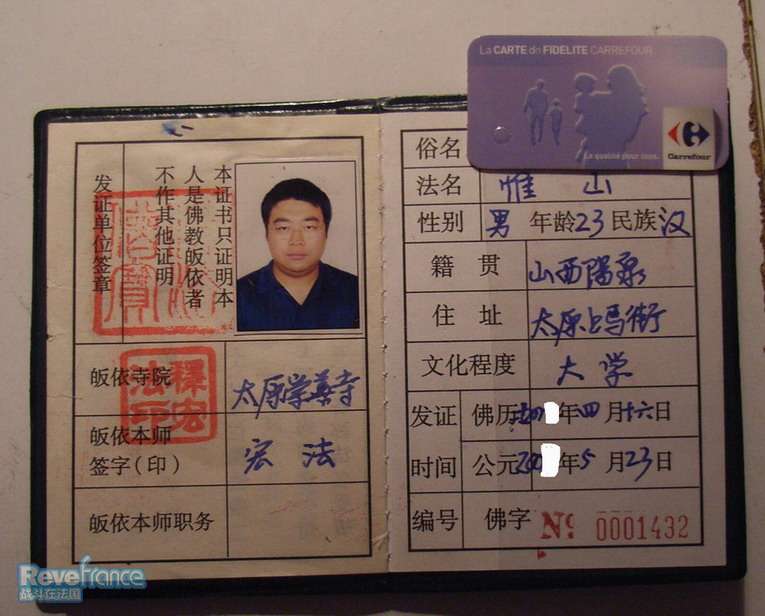 La CARTE de FIDELITE CARREFOUR
La qualité pour tous.
Carrefour
本证书只证明本
人是佛教皈依者
不作其他证明
发证单位签章
皈依寺院 太原崇善寺
皈依本师
签字(印) 宏法
皈依本师职务
俗名
法名 惟山
性别 男 年龄 23 民族 汉
籍贯 山西陽泉
住址 太原上马街
文化程度 大学
发证
时间
佛历 年 四 月 十六 日
公元 年 5 月 23 日
编号 佛字 No 0001432
ReveFrance
战斗在法国